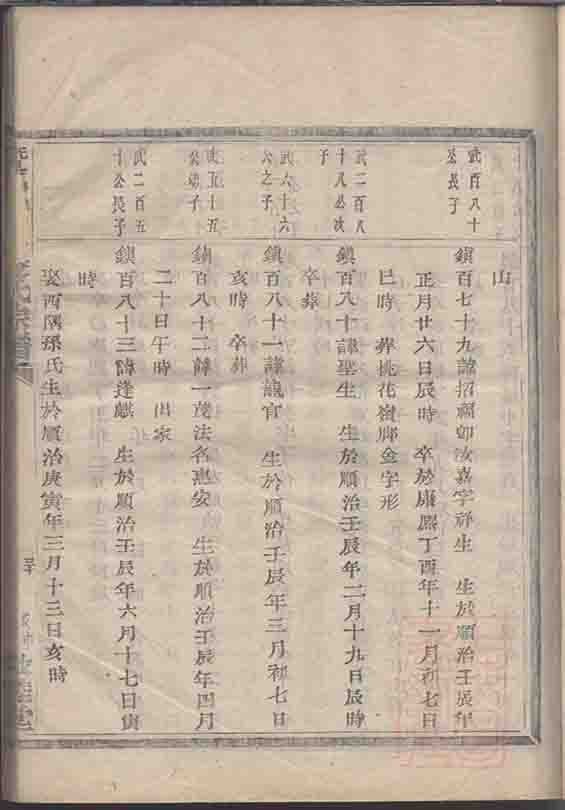 武百八十
公長子
山
鎮百七十九諱招福卯汝嘉字祥生 生於順治壬辰年
正月廿六日辰時 卒於康熙丁酉年十一月初七日
巳時 葬桃花嶺脚金字形
武二百八
十八公次
子
鎮百八十諱聖生 生於順治壬辰年二月十九日辰時
卒葬
武六十六
公之子
鎮百八十一諱龍官 生於順治壬辰年三月初七日
亥時 卒葬
武五十五
公幼子
鎮百八十二諱一茂法名惠安 生於順治壬辰年四月
二十日午時 出家
武二百五
十公長子
鎮百八十三諱逢麒 生於順治壬辰年六月十七日寅
時
娶西隅孫氏生於順治庚寅年三月十三日亥時